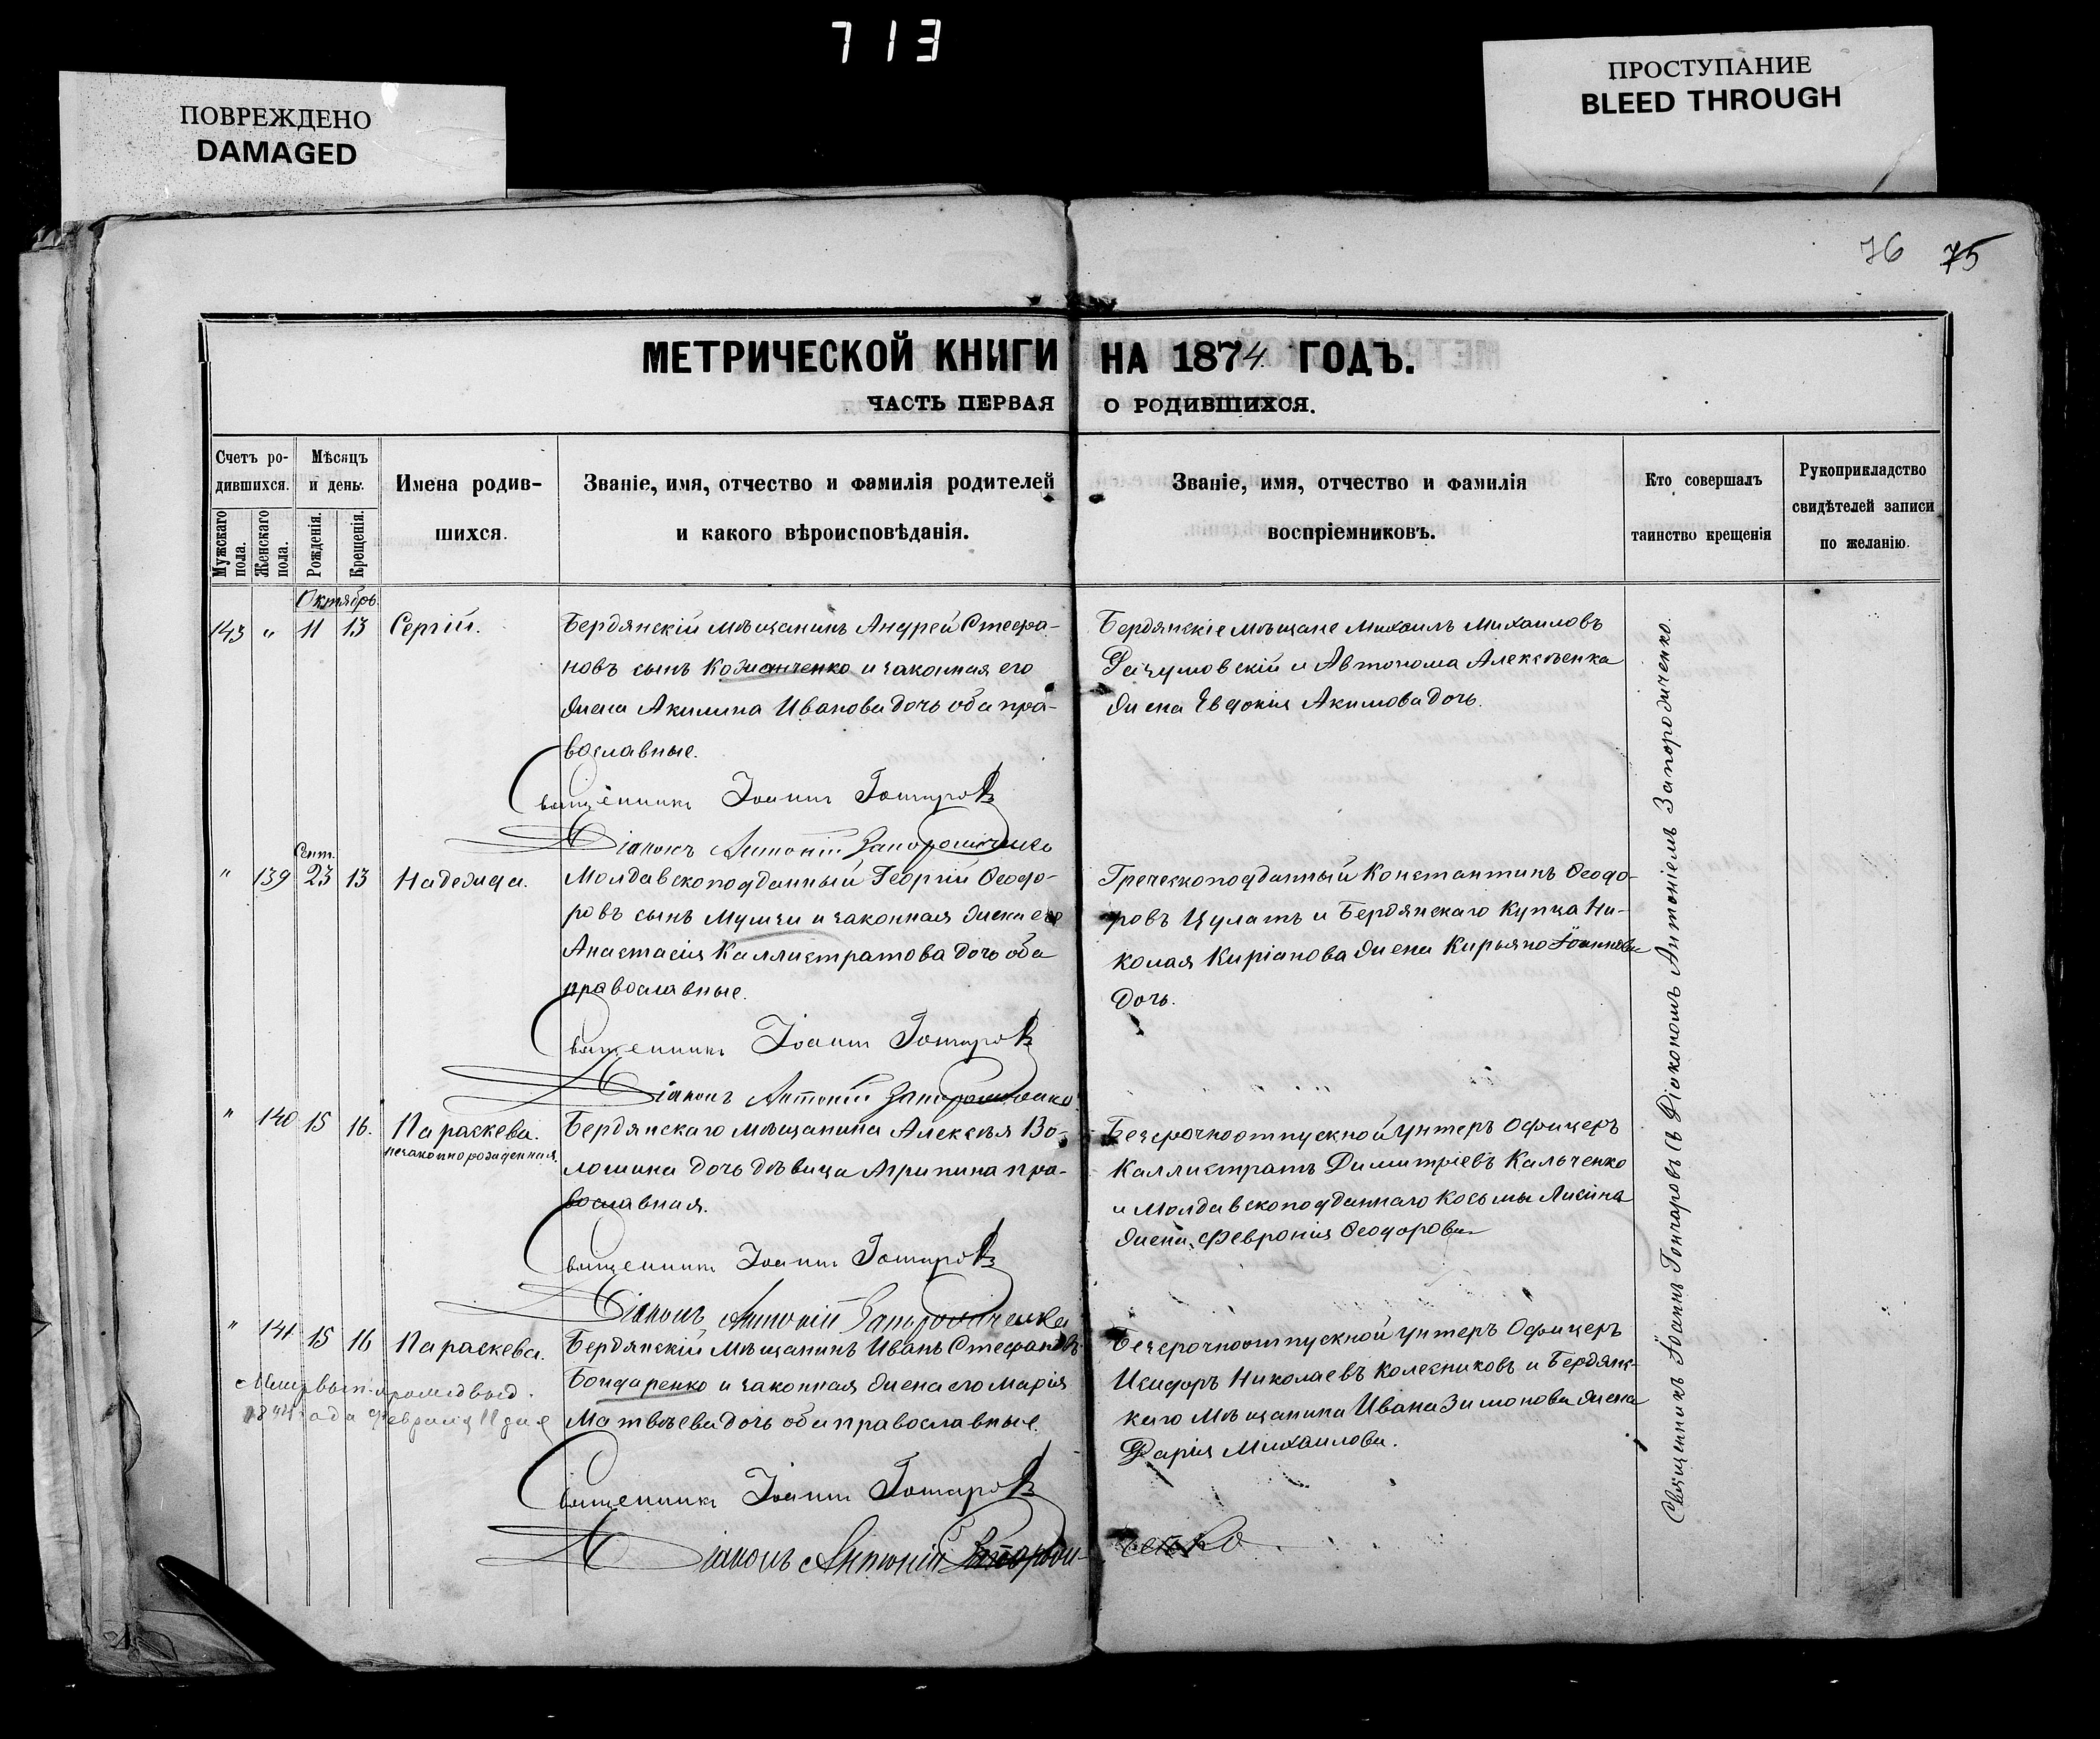 713
ПОВРЕЖДЕНО
DAMAGED
ПРОСТУПАНИЕ
BLEED THROUGH
76 75
МЕТРИЧЕСКОЙ КНИГИ НА 1874 ГОДЪ.
ЧАСТЬ ПЕРВАЯ О РОДИВШИХСЯ.
Счетъ ро-
дившихся.
Мужскаго пола.
Женскаго пола.
Мѣсяцъ
и день.
Рожденія.
Крещенія.
Имена родив-
шихся.
Званіе, имя, отчество и фамилія родителей
и какого вѣроисповѣданія.
Званіе, имя, отчество и фамилія
воспріемниковъ.
Кто совершалъ
таинство крещенія
Рукоприкладство
свидѣтелей записи
по желанію.
Октябрь
143 " 11 13 Сергій.
Бердянскій мѣщанинъ Андрей Стефа-
новъ сынъ и законная его
жена Акилина Иванова дочь оба пра-
вославные.
Бердянскіе мѣщане Михаилъ Михаиловъ
Разумовскій и Автонома Алексѣенка
жена Евдокія Акимова дочь.
Священникъ Іоаннъ Гончаровъ
Діаконъ Антоній Запорожченко
Сент.
" 139 23 13 Надежда.
Молдавскоподданный Георгій Ѳеодо-
ровъ сынъ и законная жена его
Анастасія Каллистратова дочь оба
православные.
Греческоподданный Константинъ Ѳеодо-
ровъ Цулатъ и Бердянскаго купца Ни-
колая Киріанова жена Іоаннова
дочь.
Священникъ Іоаннъ Гончаровъ
Діаконъ Антоній Запорожченко
" 140 15 16. Параскева.
незаконнорожденная.
Бердянскаго мѣщанина Алексѣя Во-
лошина дочь дѣвица Агрипина пра-
вославная.
Безсрочноотпускной унтеръ Офицеръ
Каллистратъ Димитріевъ Кальченко
и Молдавскоподданнаго Косьмы
жена Февронія Ѳеодорова
Священникъ Іоаннъ Гончаровъ
Діаконъ Антоній Запорожченко
" 141 15 16 Параскева.
Бердянскій мѣщанинъ Иванъ Стефановъ
Бондаренко и законная жена его Марія
Матвѣева дочь оба православные.
года февраля 11 дня
Безсрочноотпускной унтеръ Офицеръ
Исидоръ Николаевъ Колесниковъ и Бердянс-
каго мѣщанина Ивана Зимонова жена
Дарія Михаилова.
Священникъ Іоаннъ Гончаровъ
Діаконъ Антоній Запорожченко
Священникъ Іоаннъ Гончаровъ съ Діакономъ Антоніемъ Запорожченко.